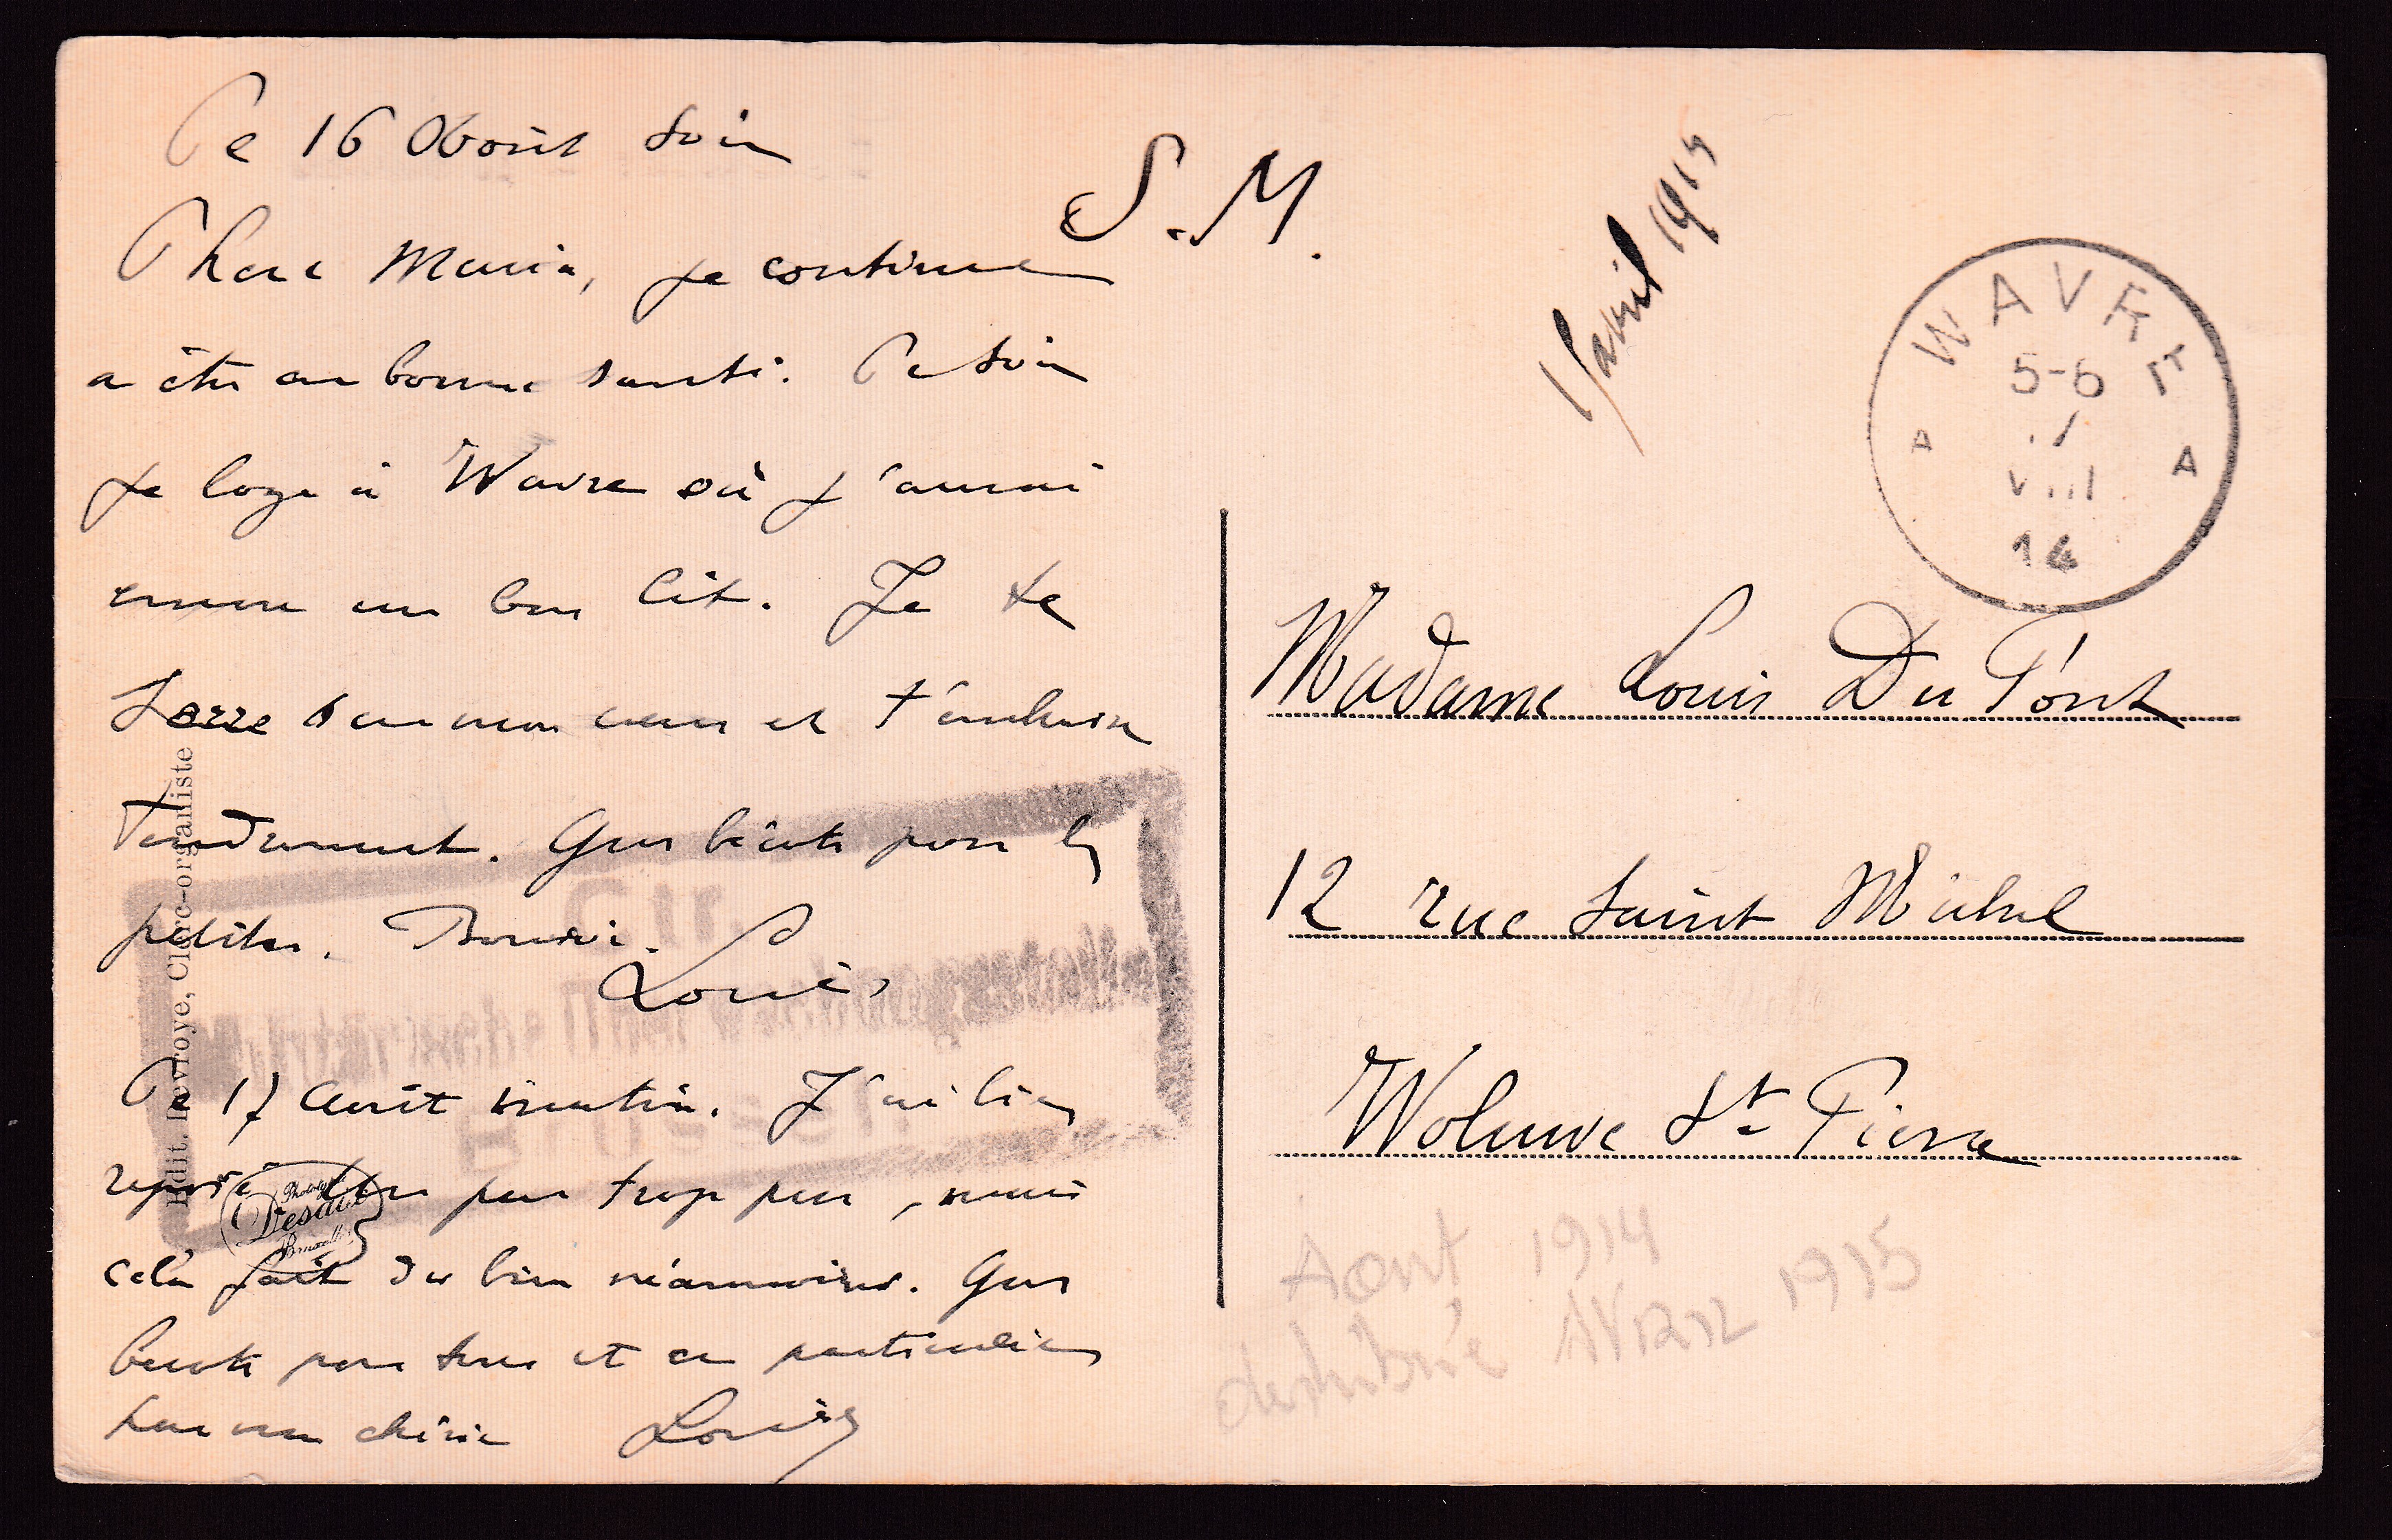 Ce 16 Août soir
S.M.
Chere Maria, je continue
a être en bonne santé. Ce soir
je loge à Wavre où j'aurai
encore un bon lit. Je te
serre sur mon cœur et t'embrasse
tendrement. Gros bécots pour les
petites. Bonsoir.
Louis
Ce 17 Août matin. J'ai bien
reposé un peu trop peu, mais
cela fait du bien néanmoins. Gros
bécots pour tous et en particulier
pour ma chérie Louis
Edit. Devroye, Clerc-organiste
Bruxelles
avril 1915
WAVRE
5-6
VIII
14
A A
Madame Louis Du Pont
12 rue Saint Michel
Woluwe St Pierre
Aout 1914
distribuée 1915